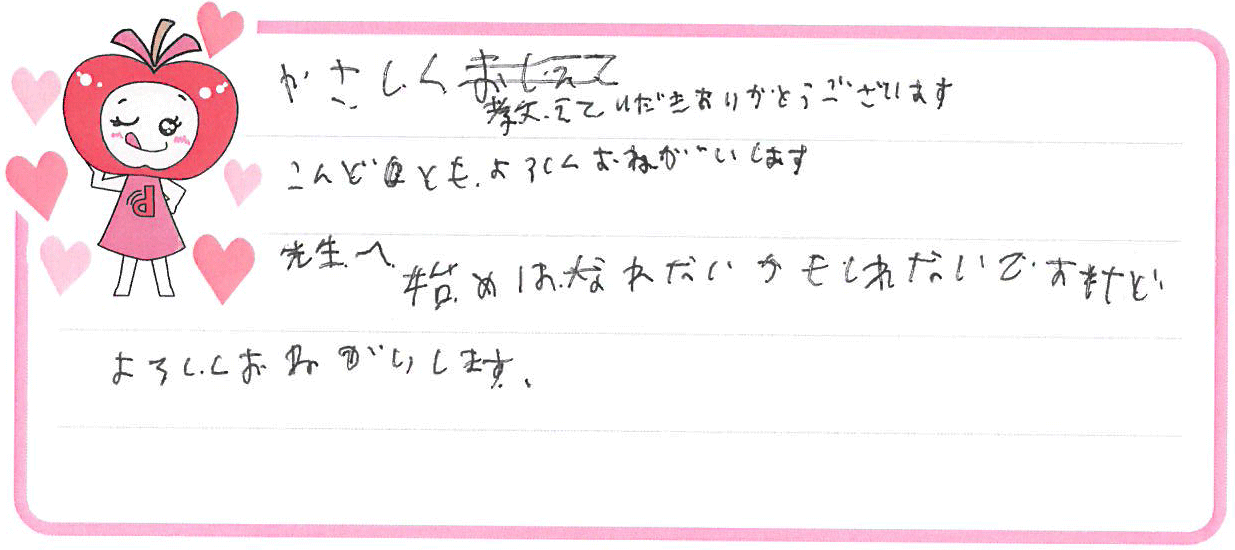 やさしく おしえて
教えていだきありがとうございます
こんどとも、よろしくおねがいします
先生へ 始めはなれないかもしれないですけど
よろしくおねがいします、